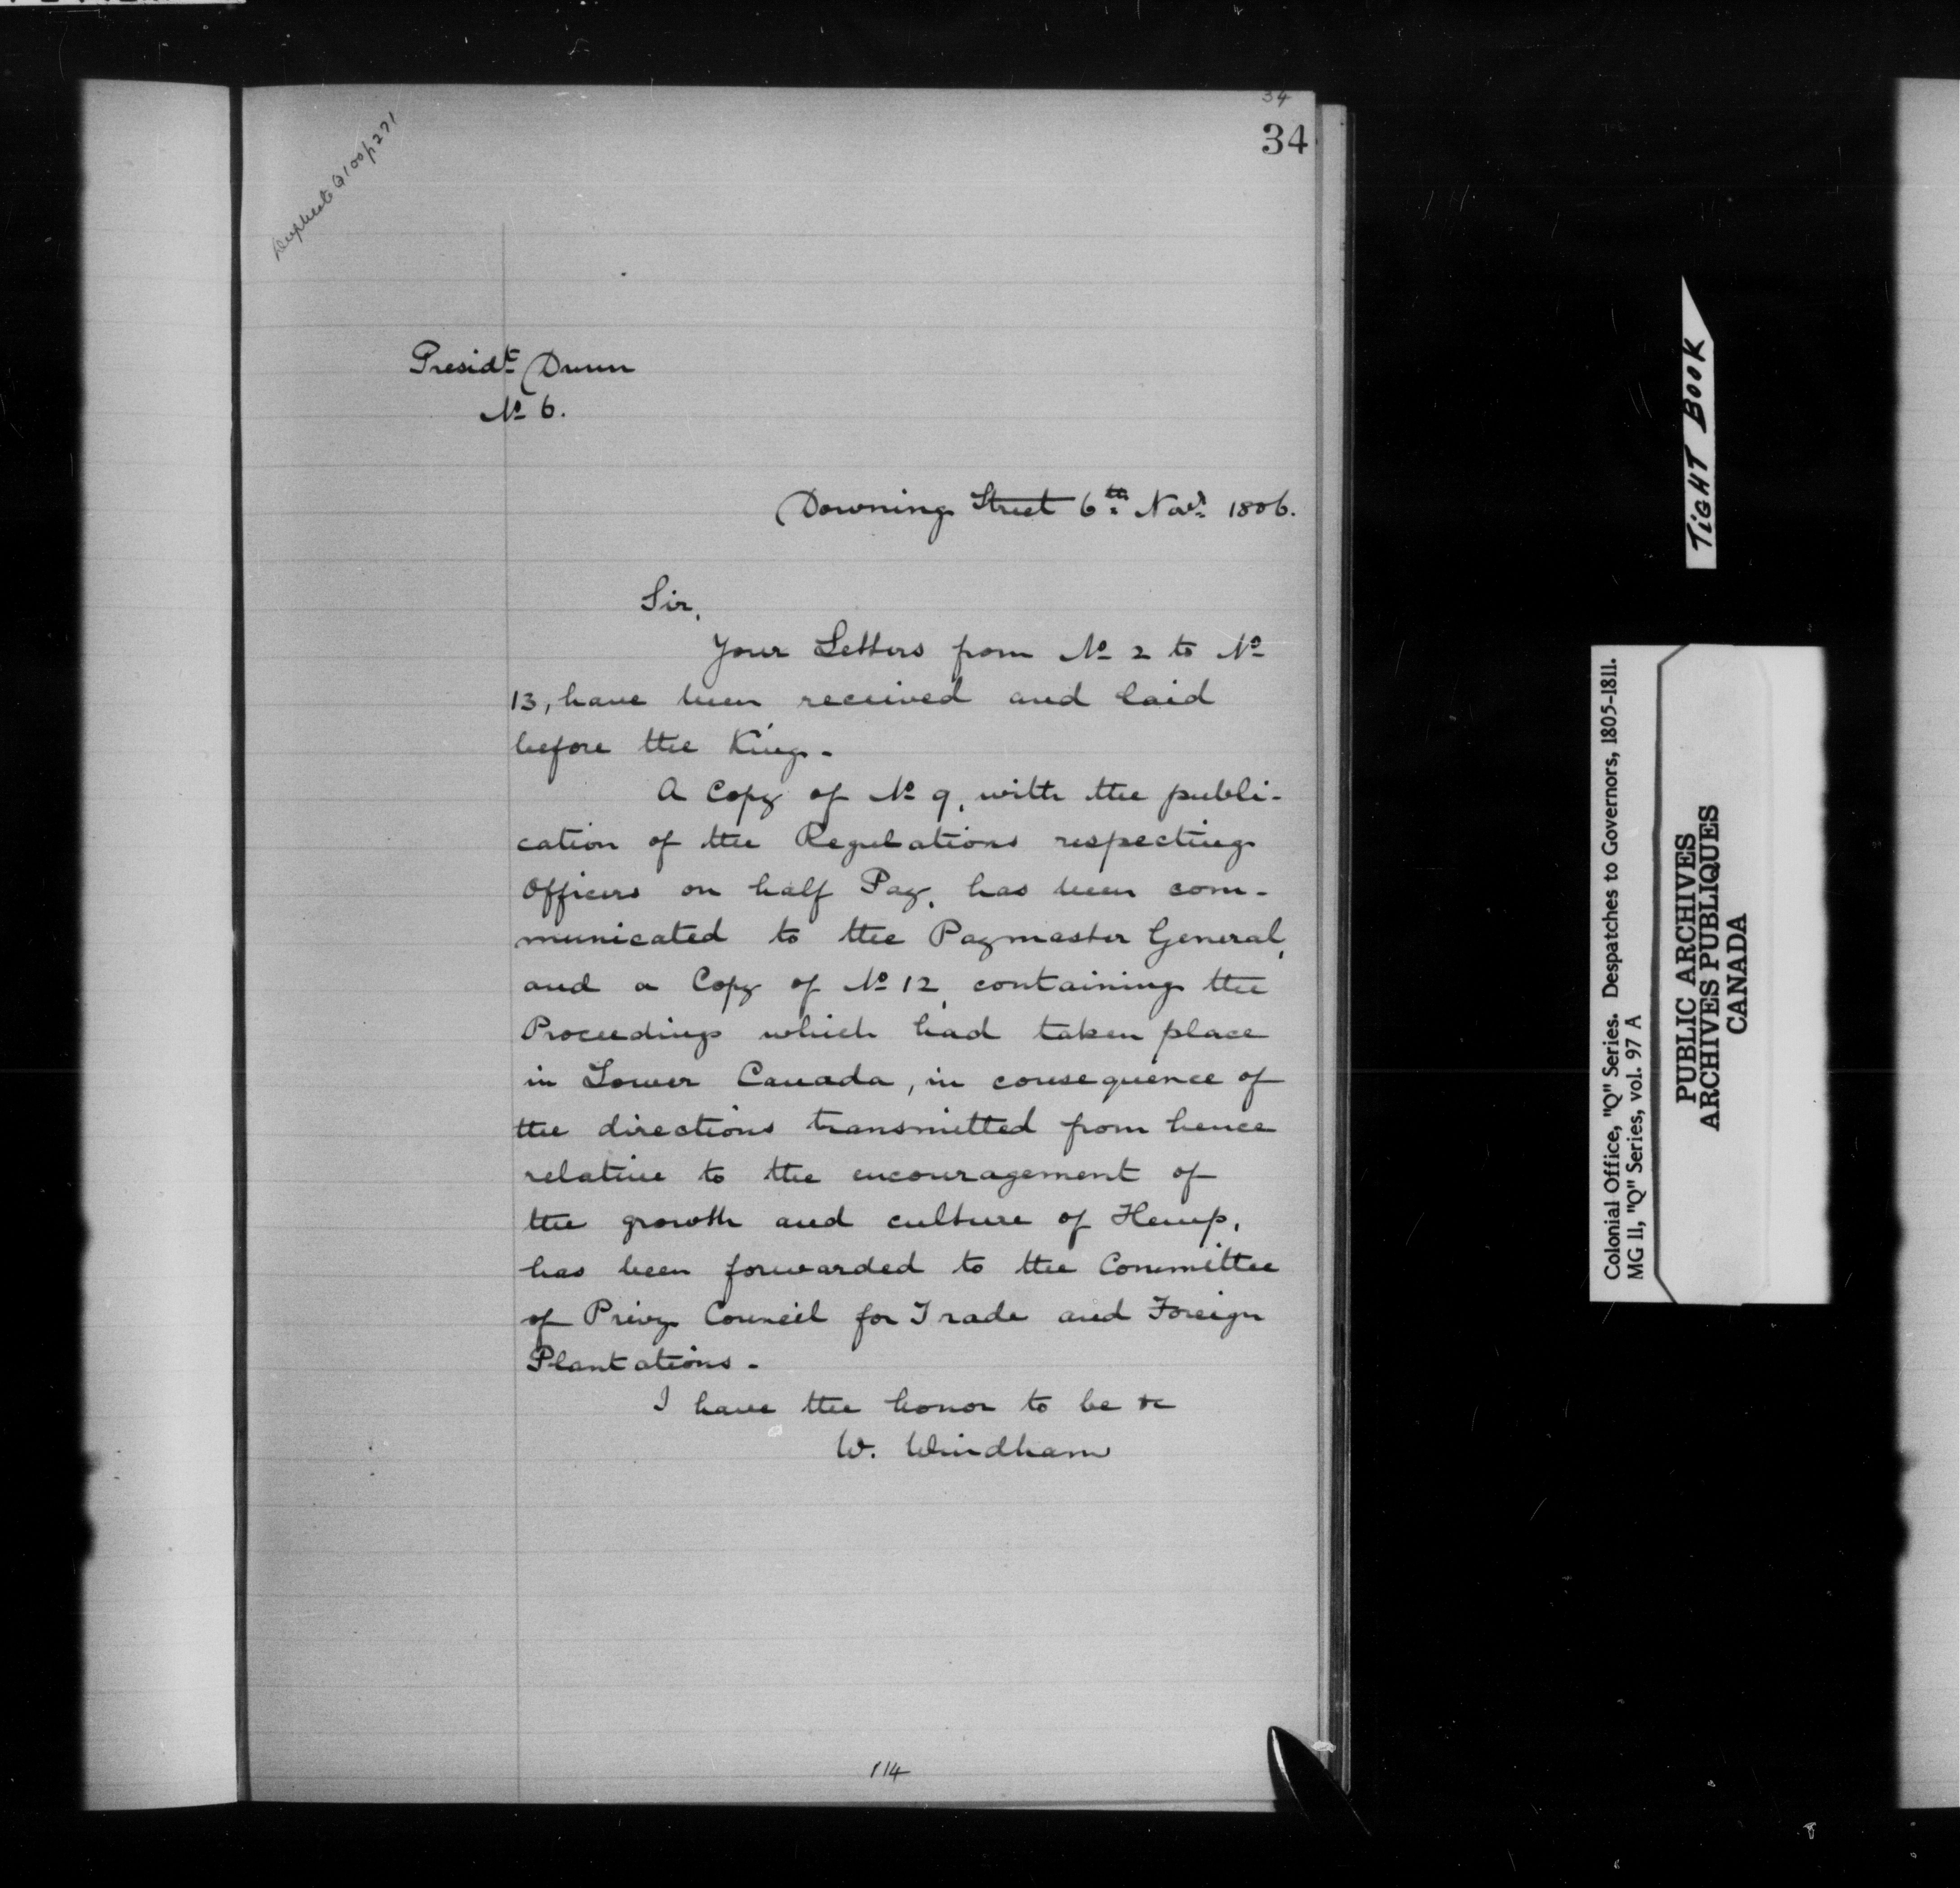 34
34
Duplicate Q 100 p 271
Presidt Dunn
No 6.
Downing Street 6th Novr 1806.
Sir,
Your Letters from No 2 to No
13, have been received and laid
before the King.
A Copy of No 9, with the publi-
cation of the Regulations respecting
Officers on half Pay, has been com-
municated to the Paymaster General,
and a Copy of No 12, containing the
Proceedings which had taken place
in Lower Canada, in consequence of
the directions transmitted from hence
relative to the encouragement of
the growth and culture of Hemp,
has been forwarded to the Committee
of Privy Council for Trade and Foreign
Plantations.
I have the honor to be &c
W. Windham
114
TIGHT BOOK
Colonial Office, "Q" Series. Despatches to Governors, 1805-1811.
MG 11, "Q" Series, vol. 97 A
PUBLIC ARCHIVES
ARCHIVES PUBLIQUES
CANADA